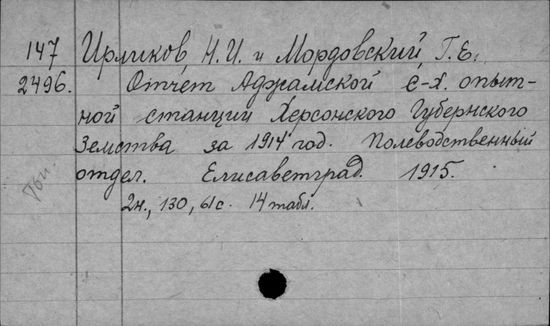 147 Ирликов, Н.И. и Мордовский, Г.Е.
2496. Отчет Аджамской с-х. опыт-
ной станции Херсонского Губернского
Земства за 1914 год. Полеводственный
отдел. Елисаветград. 1915.
2н., 130, 61с. 14 табл.